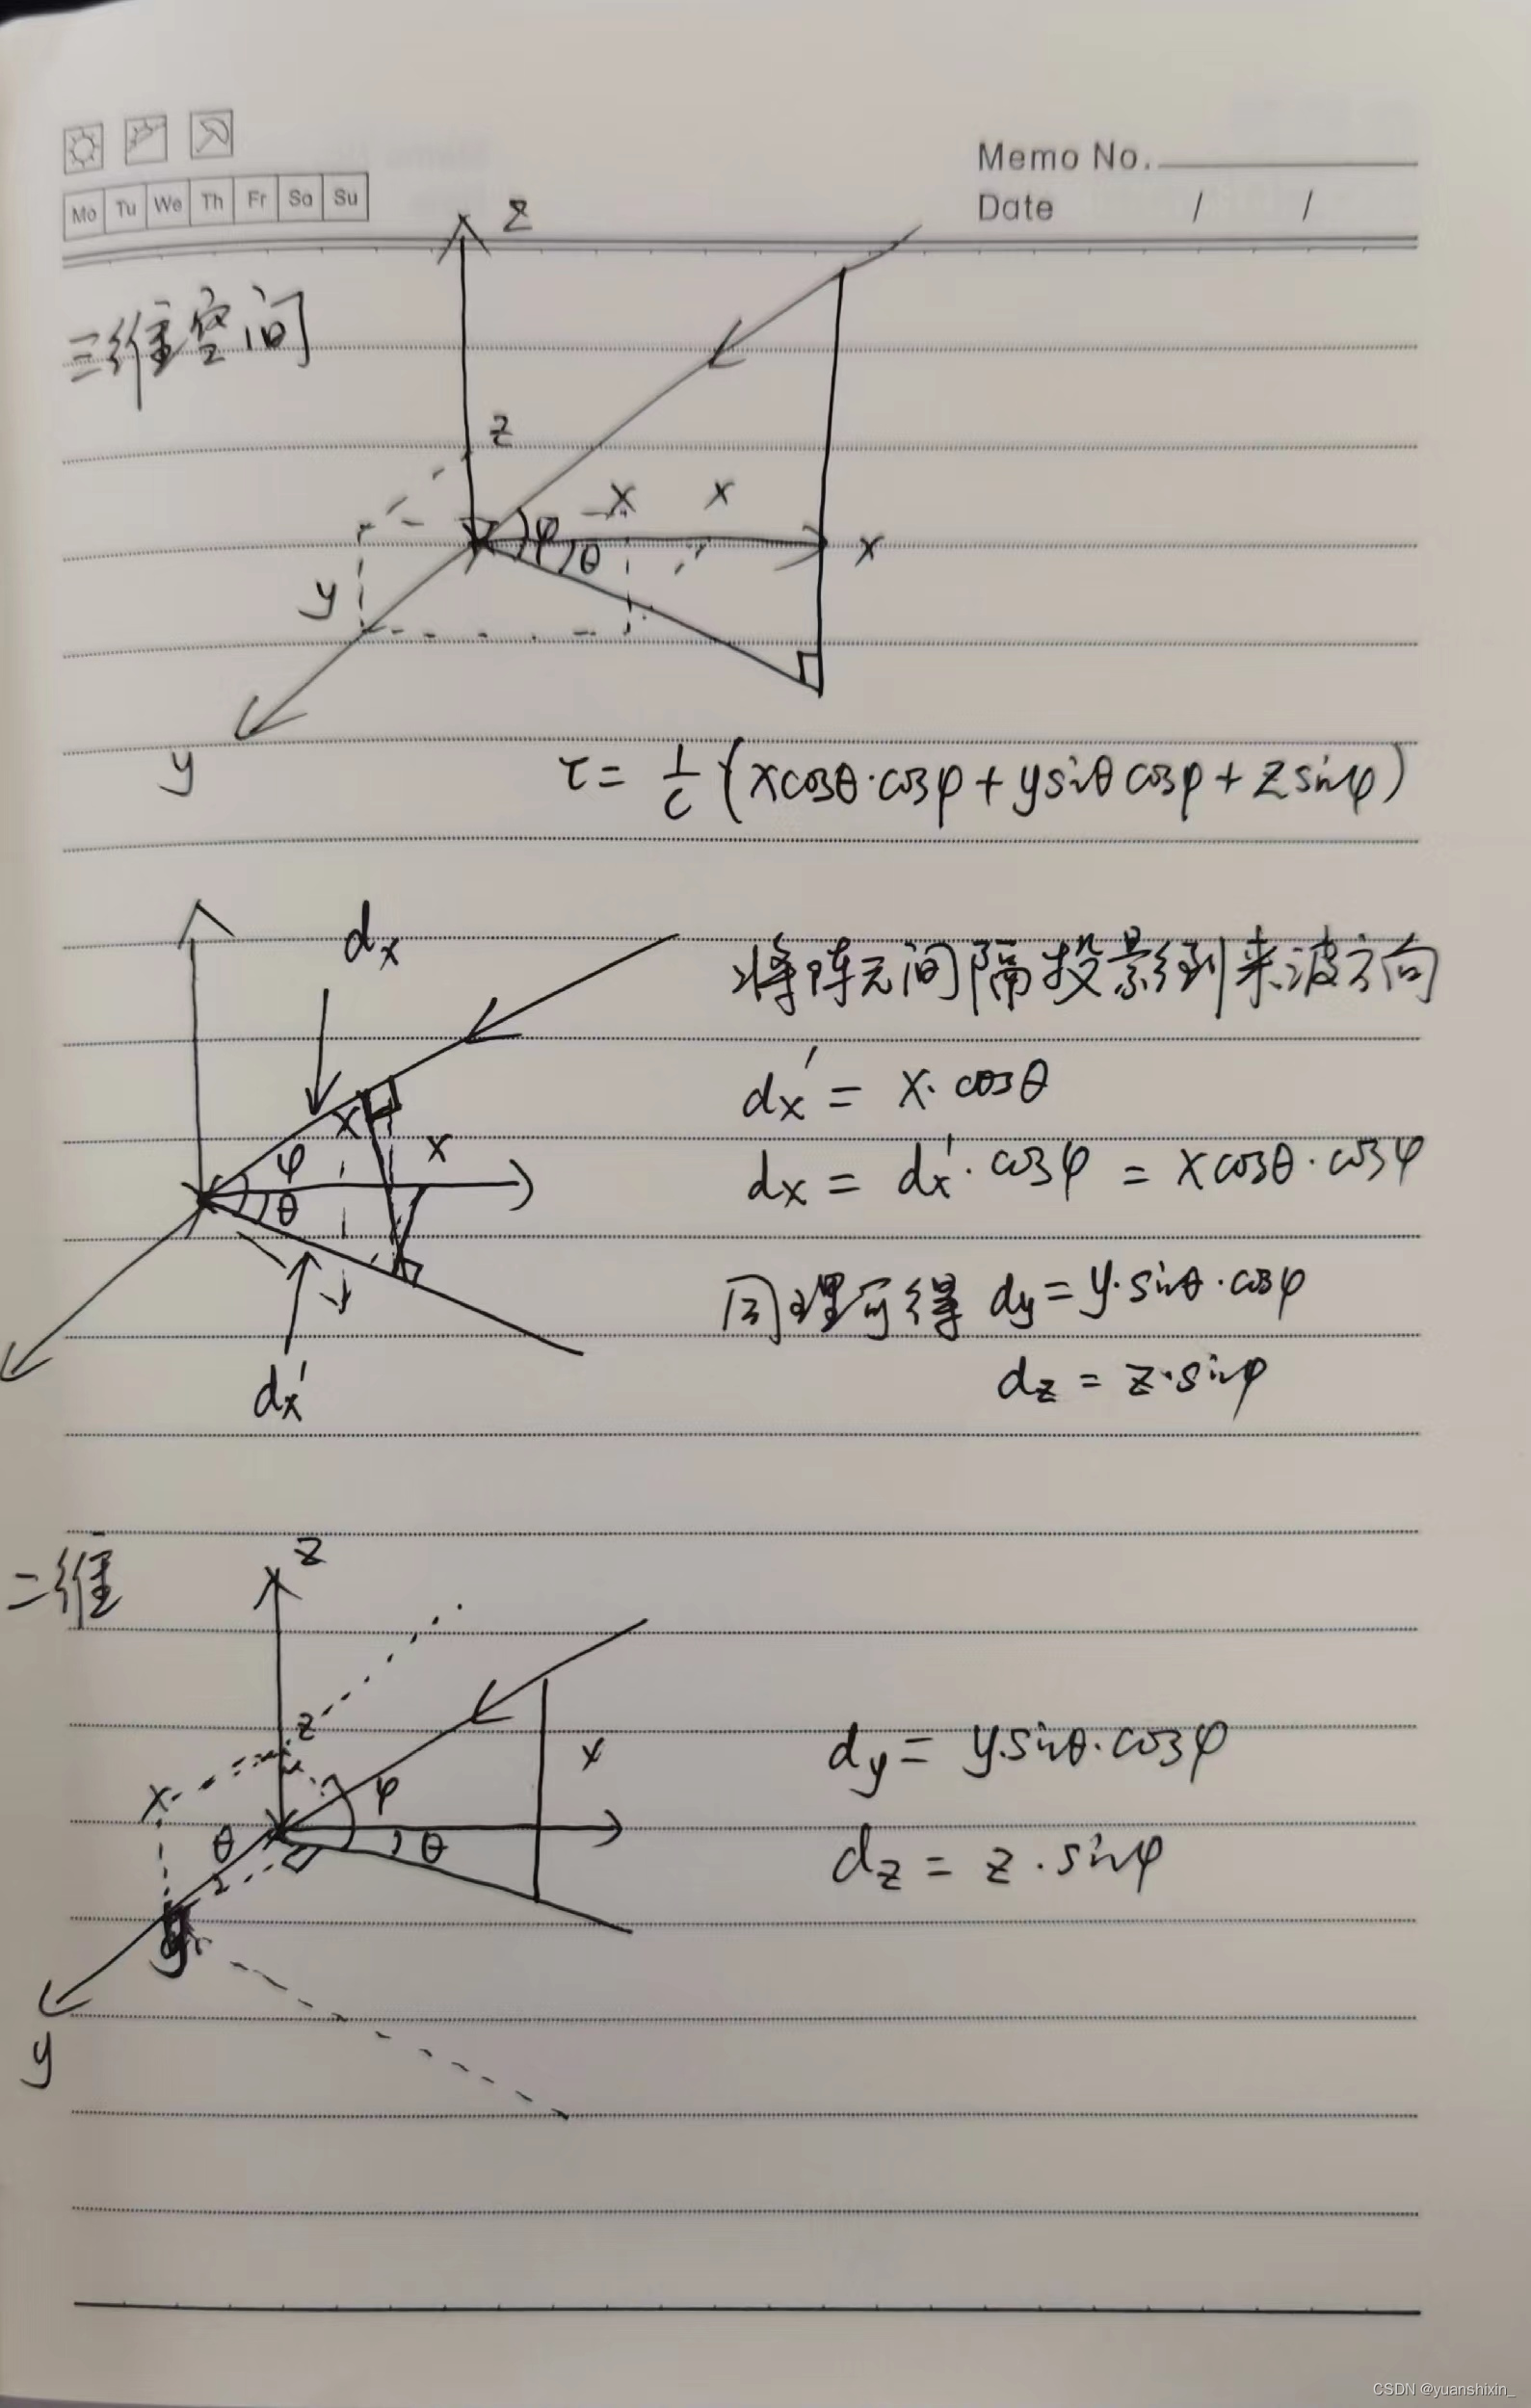 Memo No.
Mo Tu We Th Fr Sa Su
Date / /
z
三维空间
z
x x
φ
θ
x
y
y
τ = 1/c (xcosθ·cosφ + ysinθcosφ + zsinφ)
dx
将阵元间隔投影到来波方向
dx' = x·cosθ
x
φ
x
θ
dx = dx'·cosφ = xcosθ·cosφ
同理可得 dy = y·sinθ·cosφ
dx'
dz = z·sinφ
二维
z
z
x
x
φ
dy = y·sinθ·cosφ
θ
θ
dz = z·sinφ
y
y
CSDN @yuanshixin_